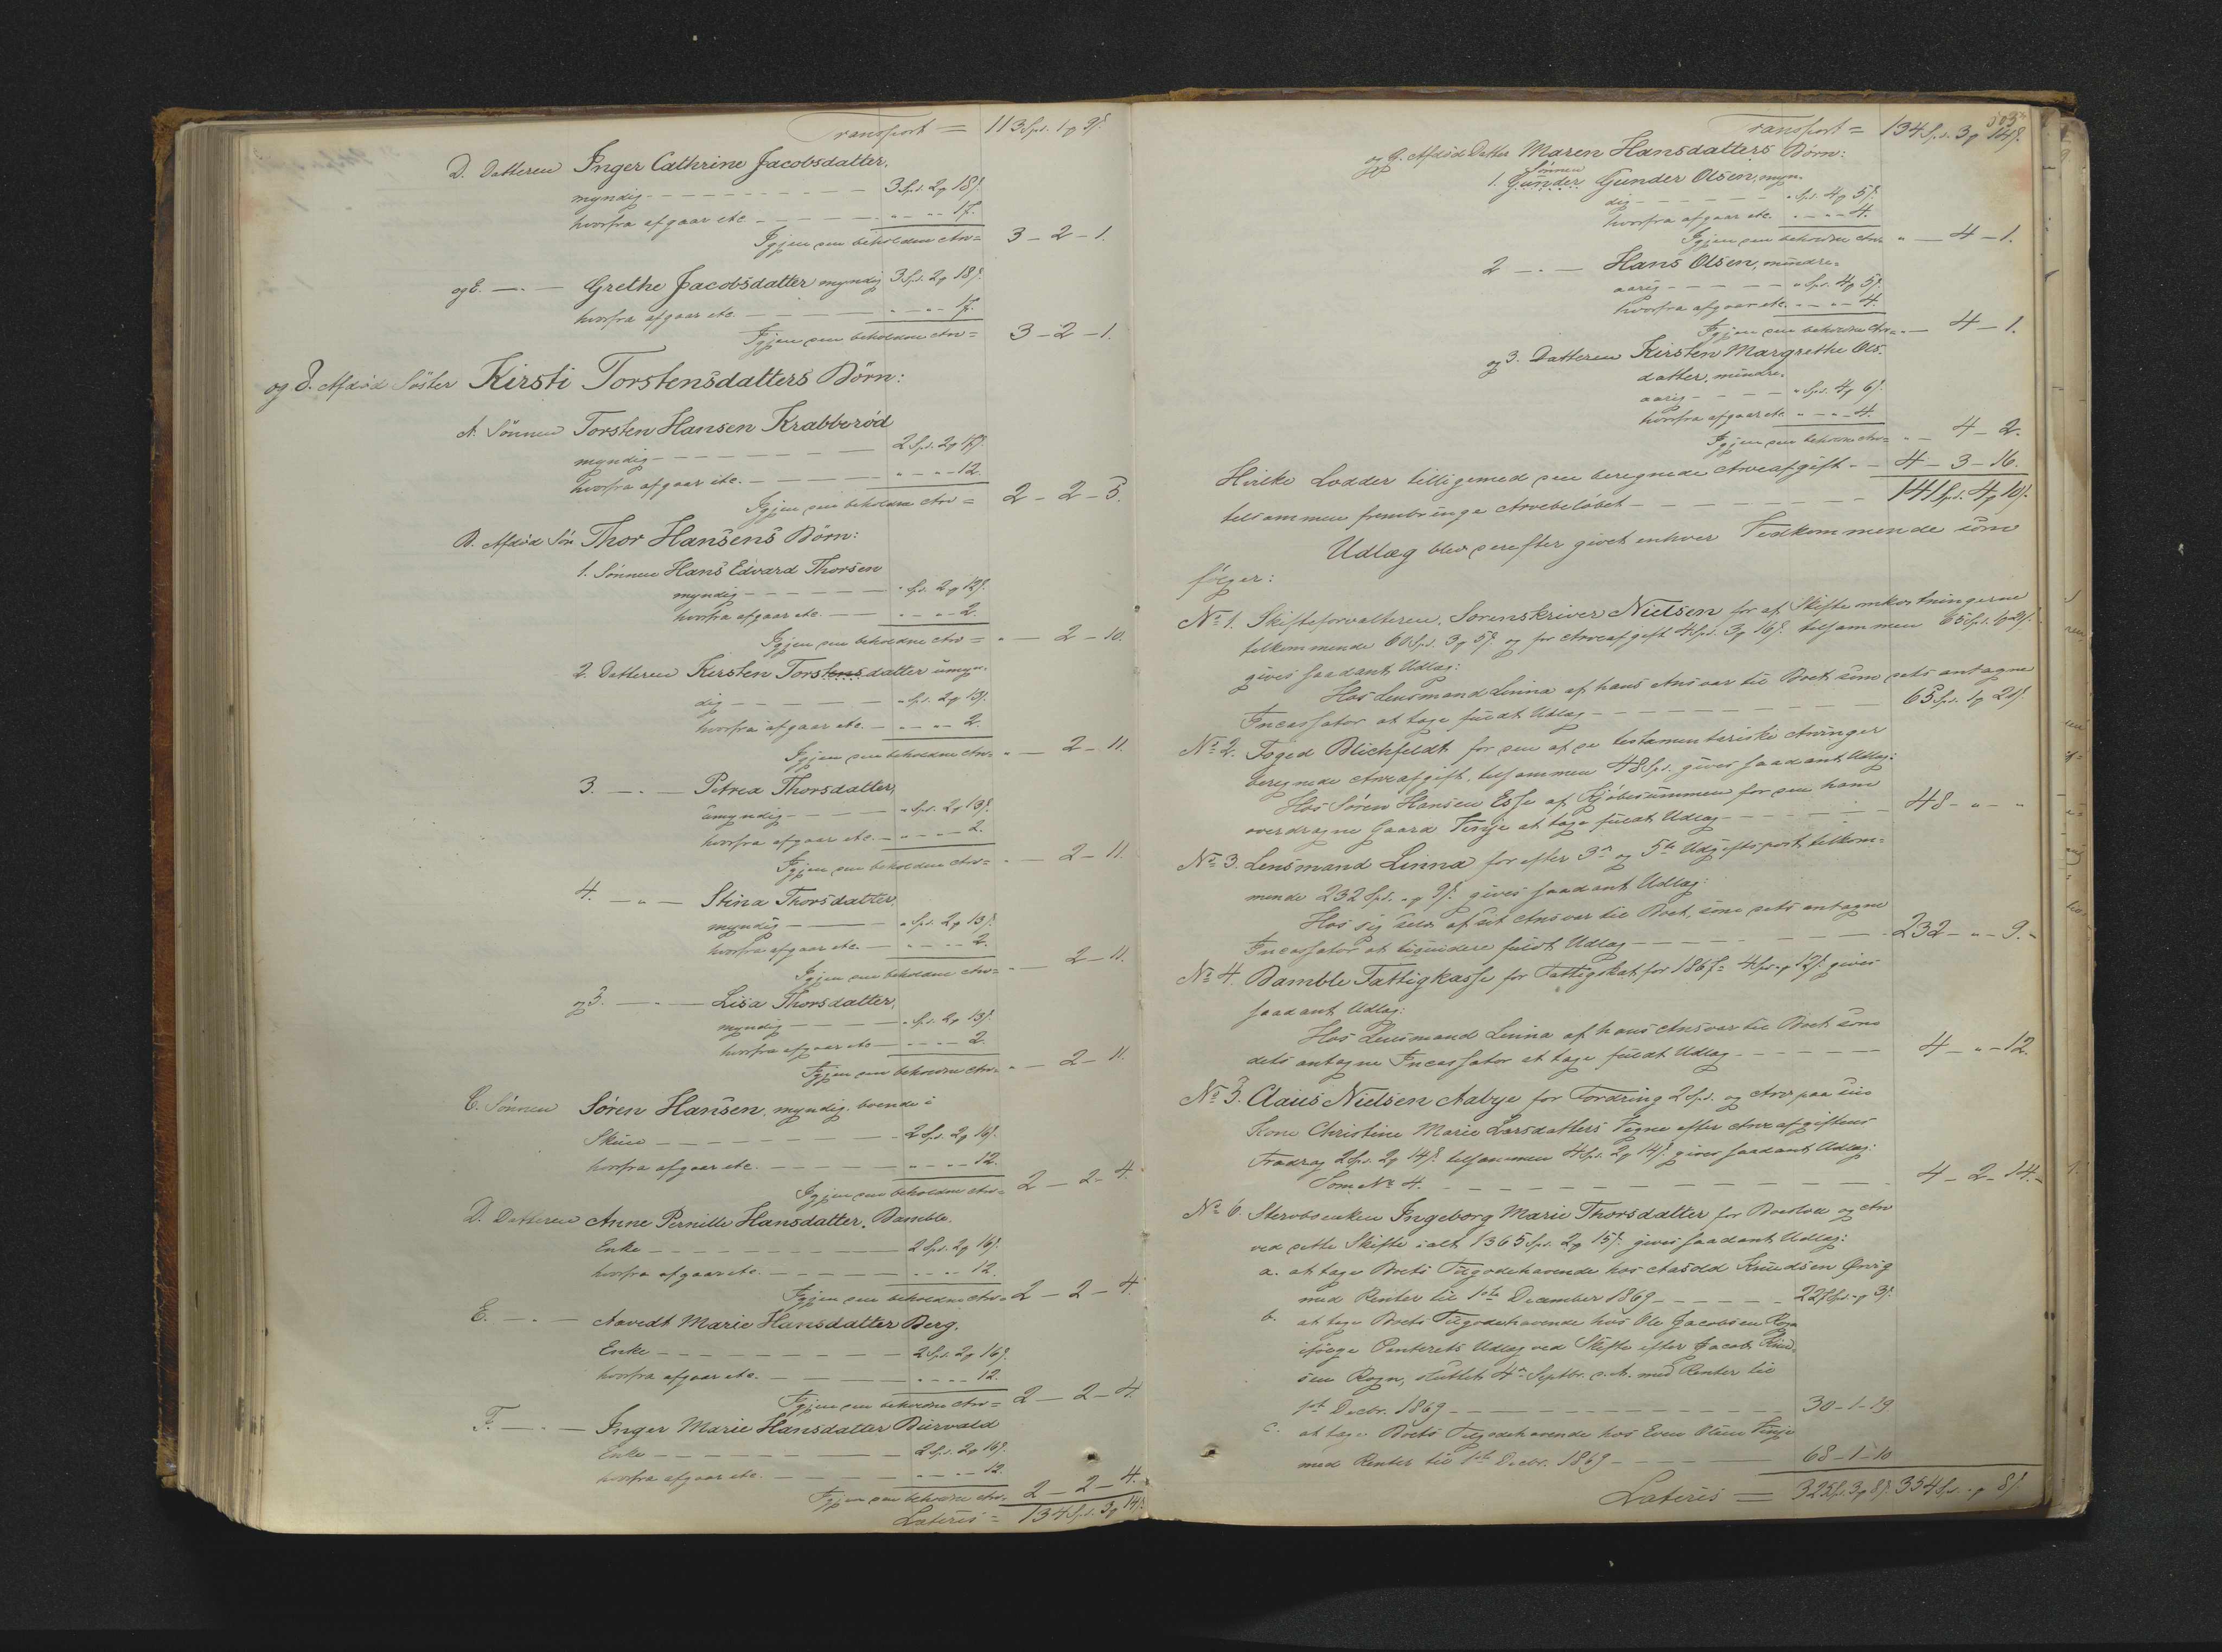 Transport = 113 Spd. 1 # 9 ß.
D. Datteren Inger Cathrine Jacobsdatter,
myndig - - - 3 Spd. 2 # 18 ß.
hvorfra afgaar etc. - - - " - " - 17.
Igjen den beholdne Arv = 3 - 2 - 1.
og E. — " — Grethe Jacobsdatter myndig 3 Spd. 2 # 18 ß.
hvorfra afgaar etc. - - - " - " - 17.
Igjen den beholdne Arv = 3 - 2 - 1.
og 8. Afdød Søster Kirsti Torstensdatters Børn:
A. Sønnen Torsten Hansen Krabberød
myndig - - - 2 Spd. 2 # 17 ß.
hvorfra afgaar etc. - - - " - " - 12.
Igjen den beholdne Arv = 2 - 2 - 5.
B. Afdød Søn Thor Hansens Børn:
1. Sønnen Hans Edvard Thorsen
myndig - - - " Spd. 2 # 12 ß.
hvorfra afgaar etc. - - - " - " - 2.
Igjen den beholdne Arv = " - 2 - 10.
2. Datteren Kirsten Torstensdatter umyn-
dig - - - " Spd. 2 # 13 ß.
hvorfra afgaar etc. - - - " - " - 2.
Igjen den beholdne Arv = " - 2 - 11.
3. — " — Petrea Thorsdatter,
umyndig - - - " Spd. 2 # 13 ß.
hvorfra afgaar etc. - - - " - " - 2.
Igjen den beholdne Arv = " - 2 - 11.
4. — " — Stina Thorsdatter,
myndig - - - " Spd. 2 # 13 ß.
hvorfra afgaar etc. - - - " - " - 2.
Igjen den beholdne Arv = " - 2 - 11.
og 5. — " — Lisa Thorsdatter,
myndig - - - " Spd. 2 # 13 ß.
hvorfra afgaar etc. - - - " - " - 2.
Igjen den beholdne Arv = " - 2 - 11.
C. Sønnen Søren Hansen, myndig, boende i
Skien - - - 2 Spd. 2 # 16 ß.
hvorfra afgaar etc. - - - " - " - 12.
Igjen den beholdne Arv = 2 - 2 - 4.
D. Datteren Anne Pernille Hansdatter, Bamble.
Enke - - - 2 Spd. 2 # 16 ß.
hvorfra afgaar etc. - - - " - " - 12.
Igjen den beholdne Arv = 2 - 2 - 4.
E. — " — Aavedt Marie Hansdatter Berg.
Enke - - - 2 Spd. 2 # 16 ß.
hvorfra afgaar etc. - - - " - " - 12.
Igjen den beholdne Arv = 2 - 2 - 4.
F. — " — Inger Marie Hansdatter
Enke - - - 2 Spd. 2 # 16 ß.
hvorfra afgaar etc. - - - " - " - 12.
Igjen den beholdne Arv = 2 - 2 - 4.
Lateris = 134 Spd. 3 # 14 ß.
503
Transport = 134 Spd. 3 # 14 ß.
og G. Afdød Datter Maren Hansdatters Børn:
Sønnen
1. Gunder Gunder Olsen, myn-
dig - - - " Spd. 4 # 5 ß.
hvorfra afgaar etc. - - - " - " - 4.
Igjen den beholdne Arv = " - 4 - 1.
2 — " — Hans Olsen, mindre-
aarig - - - " Spd. 4 # 5 ß.
hvorfra afgaar etc. - - - " - " - 4.
Igjen den beholdne Arv = " - 4 - 1.
og 3. Datteren Kirsten Margrethe Ols-
datter, mindre-
aarig - - - " Spd. 4 # 6 ß.
hvorfra afgaar etc. " - " - 4.
Igjen den beholdne Arv = " - 4 - 2.
Hvilke Lodder tilligemed den beregnede Arveafgift - - 4 - 3 - 16.
tilsammen frembringe Arvebeløbet - - - 141 Spd. 4 # 10 ß.
Udlæg blev derefter givet enhver Vedkommende som
følger:
No 1. Skifteforvalteren, Sorenskriver Nielsen for af Skifteomkostningerne
tilkommende 60 Spd. 3 # 5 ß. og for Arveafgift 4 Spd. 3 # 16 ß. tilsammen 65 Spd. 1 # 21 ß.
gives saadant Udlæg:
Hos Lensmand Linna af hans Ansvar til Boet som dets antagne
Incassator at tage fuldt Udlæg - - - 65 Spd. 1 # 21 ß.
No 2. Foged Blichfeldt for den af de testamentariske Arvinger
beregnede Arveafgift, tilsammen 48 Spd. gives saadant Udlæg:
Hos Søren Hansen Esse af Kjøbesummen for den ham
overdragne Gaard Vinje at tage fuldt Udlæg - - - 48 - " - "
No 3. Lensmand Linna for efter 3de og 5te Udgiftspost tilkom-
mende 232 Spd. " # 9 ß. gives saadant Udlæg:
Hos sig selv af sit Ansvar til Boet, som dets antagne
Incassator at liquidere fuldt Udlæg - - - 232 - " - 9.
No 4. Bamble Fattigkasse for Fattigskat for 1867 = 4 Spd. " # 12 ß. gives
saadant Udlæg:
Hos Lensmand Linna af hans Ansvar til Boet som
dets antagne Incassator at tage fuldt Udlæg - - - 4 - " - 12.
No 5. Claus Nielsen Aabye for Fordring 2 Spd. og Arv paa sin
Kone Christine Marie Larsdatters Vegne efter Arveafgiftens
Fradrag 2 Spd. 2 # 14 ß. tilsammen 4 Spd. 2 # 14 ß. gives saadant Udlæg:
Som No 4. - - - 4 - 2 - 14.
No 6. Stervboenken Ingeborg Marie Thorsdatter for Boeslod og Arv
ved dette Skifte ialt 1365 Spd. 2 # 15 ß. gives saadant Udlæg:
a. at tage Boets Tilgodehavende hos Aasold Knudsen Ørvig
med Renter til 1ste December 1869 - - - 227 Spd. " # 3 ß.
b. at tage Boets Tilgodehavende hos Ole Jacobsen Rogn
ifølge Panterets Udlæg ved Skifte efter Jacob Knud-
sen Rogn, sluttet 4de Septbr. d. A. med Renter til
1ste Decbr. 1869 - - - 30 - 1 - 19
c. at tage Boets Tilgodehavende hos Even Olsen Vinje
med Renter til 1ste Decbr. 1869 - - - 68 - 1 - 10
Lateris = 325 Spd. 3 # 8 ß. 354 Spd. " # 8 ß.